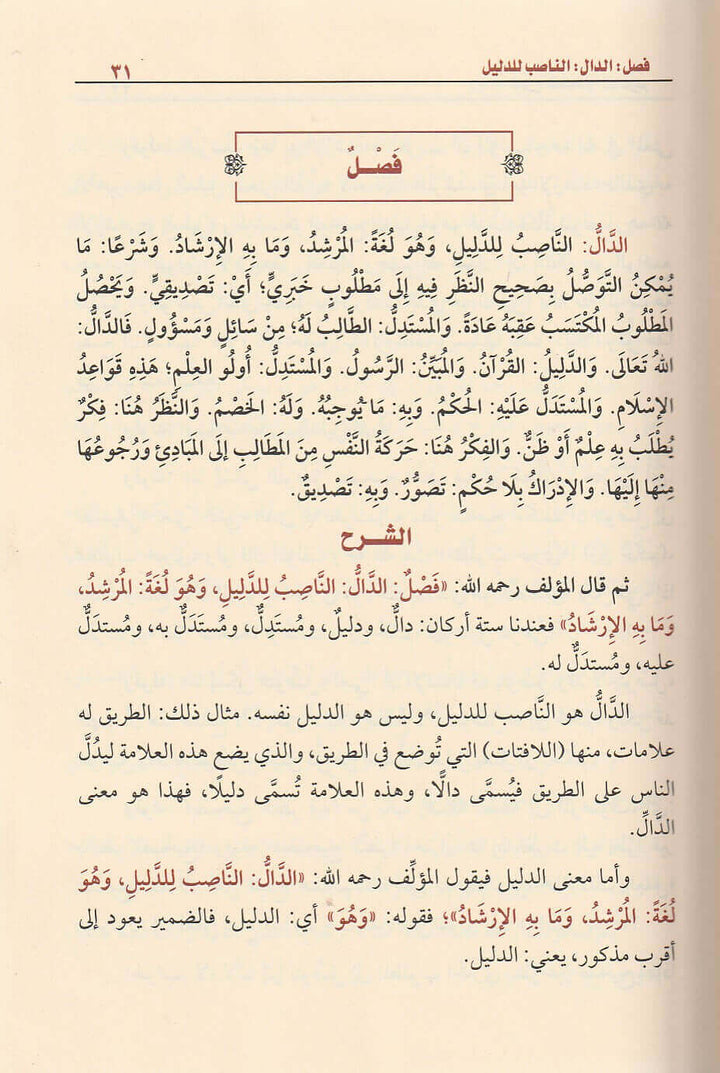 فصل: الدال: الناصب للدليل ٣١
فَصْلٌ
الدَّالُّ: النَّاصِبُ لِلدَّلِيلِ، وَهُوَ لُغَةً: المُرْشِدُ، وَمَا بِهِ الإِرْشَادُ. وَشَرْعًا: مَا
يُمْكِنُ التَّوَصُّلُ بِصَحِيحِ النَّظَرِ فِيهِ إِلَى مَطْلُوبٍ خَبَرِيٍّ؛ أَيْ: تَصْدِيقِيٍّ. وَيَحْصُلُ
المَطْلُوبُ المُكْتَسَبُ عَقِبَهُ عَادَةً. وَالمُسْتَدِلُّ: الطَّالِبُ لَهُ؛ مِنْ سَائِلٍ وَمَسْؤُولٍ. فَالدَّالُّ:
اللهُ تَعَالَى. وَالدَّلِيلُ: القُرْآنُ. وَالمُبَيِّنُ: الرَّسُولُ. وَالمُسْتَدِلُّ: أُولُو العِلْمِ؛ هَذِهِ قَوَاعِدُ
الإِسْلَامِ. وَالمُسْتَدَلُّ عَلَيْهِ: الحُكْمُ. وَبِهِ: مَا يُوجِبُهُ. وَلَهُ: الخَصْمُ. وَالنَّظَرُ هُنَا: فِكْرٌ
يُطْلَبُ بِهِ عِلْمٌ أَوْ ظَنٌّ. وَالفِكْرُ هُنَا: حَرَكَةُ النَّفْسِ مِنَ المَطَالِبِ إِلَى المَبَادِئِ وَرُجُوعُهَا
مِنْهَا إِلَيْهَا. وَالإِدْرَاكُ بِلَا حُكْمٍ: تَصَوُّرٌ. وَبِهِ: تَصْدِيقٌ.
الشرح
ثم قال المؤلف رحمه الله: «فَصْلٌ: الدَّالُّ: النَّاصِبُ لِلدَّلِيلِ، وَهُوَ لُغَةً: المُرْشِدُ،
وَمَا بِهِ الإِرْشَادُ» فعندنا ستة أركان: دالٌّ، ودليلٌ، ومُستَدِلٌّ، ومُستَدَلٌّ به، ومُستدَلٌّ
عليه، ومُستدَلٌّ له.
الدَّالُّ هو النَّاصب للدليل، وليس هو الدليل نفسه. مثال ذلك: الطريق له
علامات، منها (اللافتات) التي تُوضع في الطريق، والذي يضع هذه العلامة ليدُلَّ
الناس على الطريق فيُسمَّى دالًّا، وهذه العلامة تُسمَّى دليلًا، فهذا هو معنى
الدَّالِّ.
وأما معنى الدليل فيقول المؤلِّف رحمه الله: «الدَّالُّ: النَّاصِبُ لِلدَّلِيلِ، وَهُوَ
لُغَةً: المُرْشِدُ، وَمَا بِهِ الإِرْشَادُ»؛ فقوله: «وَهُوَ» أي: الدليل، فالضمير يعود إلى
أقرب مذكور، يعني: الدليل.